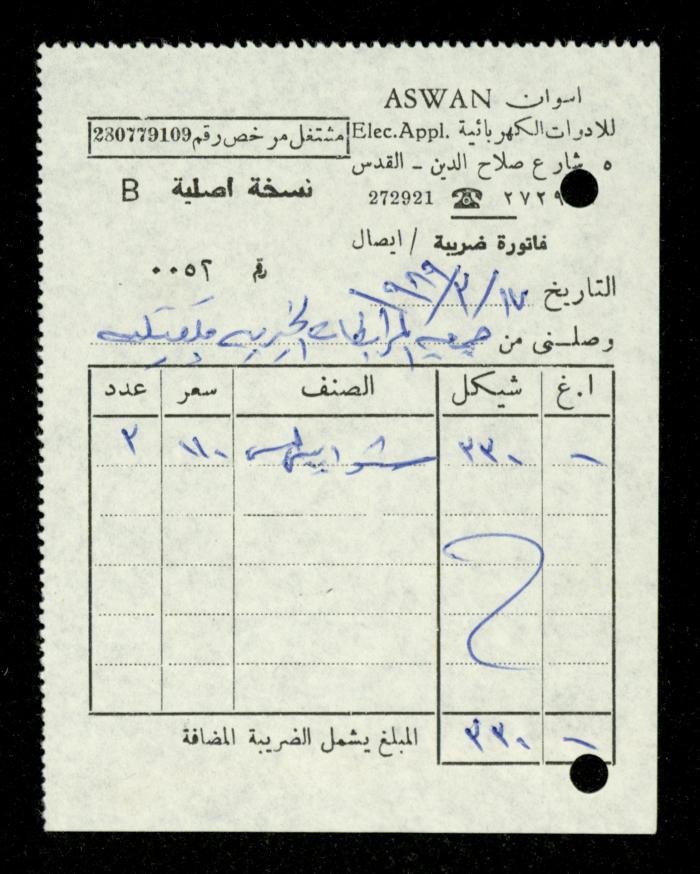 اسوان ASWAN
للادوات الكهربائية Elec.Appl.
مشتغل مرخص رقم 230779109
٥ شارع صلاح الدين ـ القدس
272921 ☎ ٢٧٢٩
نسخة اصلية B
فاتورة ضريبة / ايصال
رقم ٠٠٥٢
التاريخ ١٧/٢/١٩٨٩
وصلـنى من جمعيه المرابطات الخيريه قلقيليه
ا.غ شيكل الصنف سعر عدد
٢٢٠ ١١٠ ٢
المبلغ يشمل الضريبة المضافة
٢٢٠